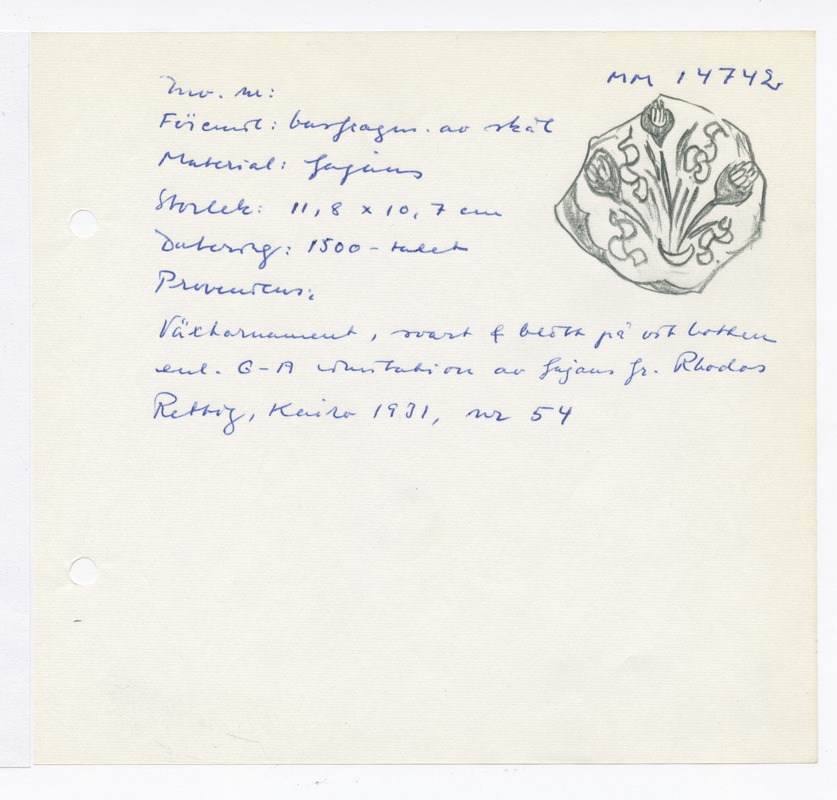 MM 14742
Inv. nr:
Föremål: basfragm. av skål
Material: Fajans
Storlek: 11,8 x 10,7 cm
Datering: 1500-talet
Proveniens:
Växtornament, svart & blått på vit botten
enl. C-A imitation av fajans fr. Rhodos
Rettig, Kairo 1931, nr 54